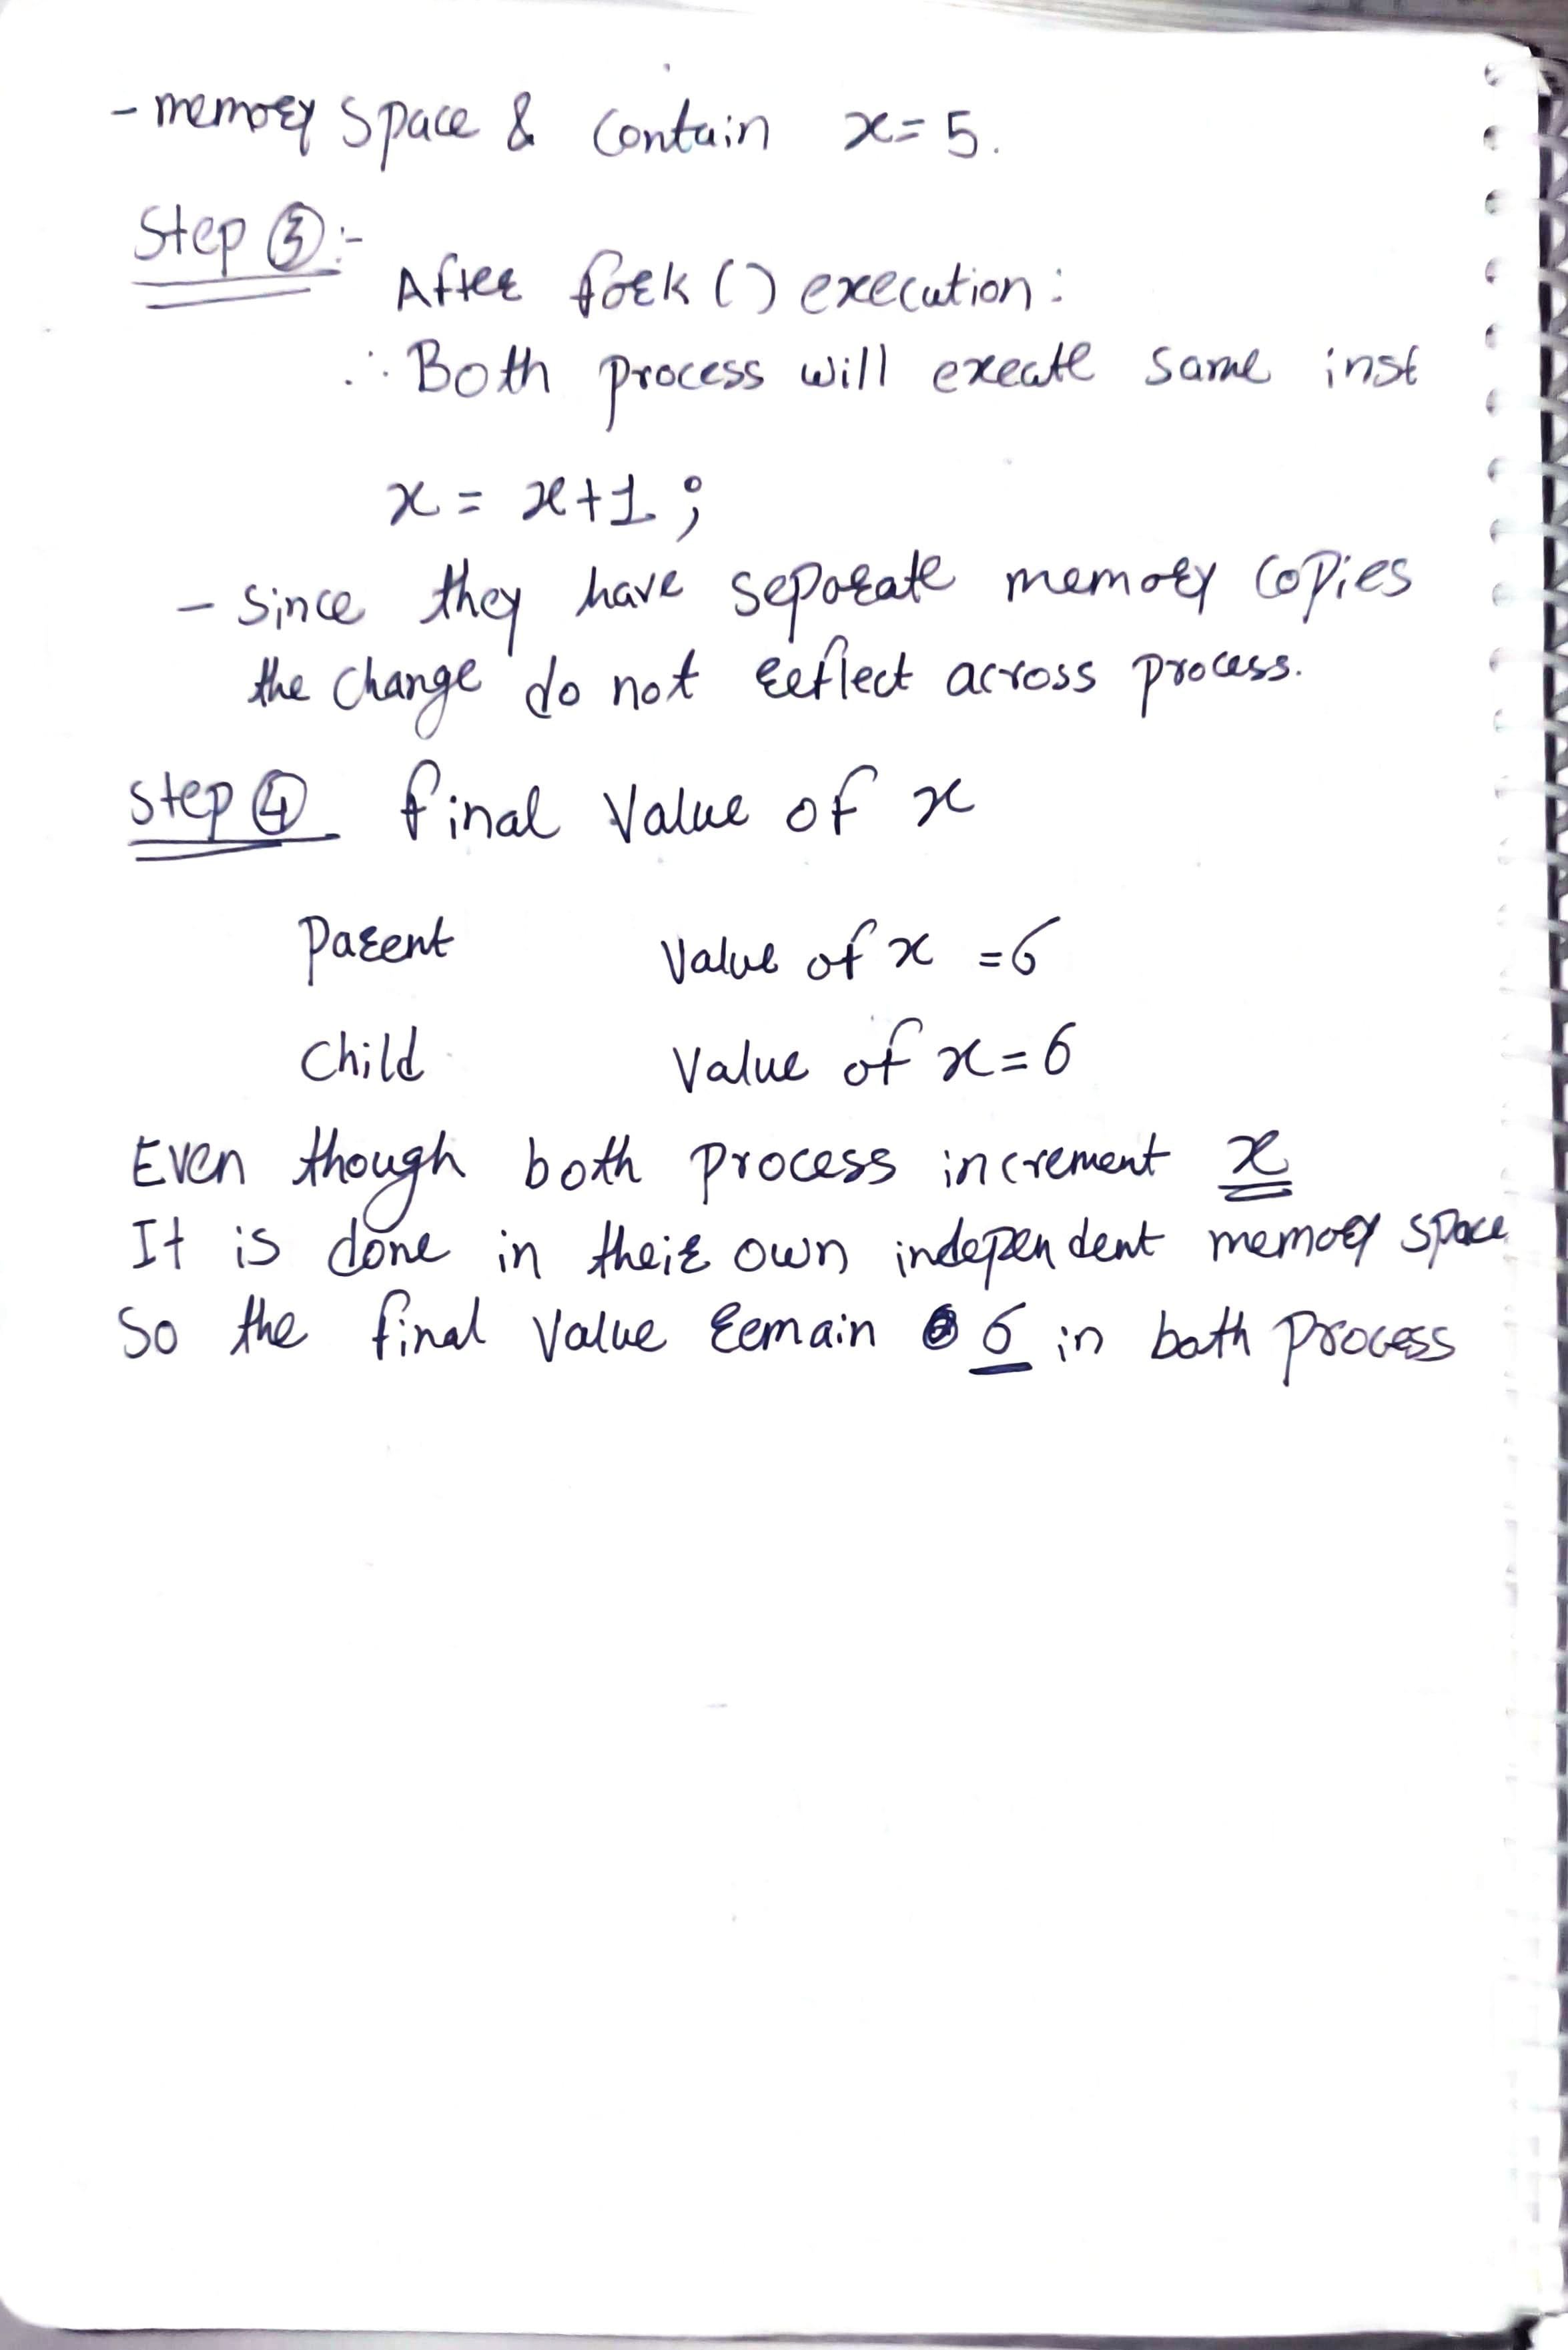 - memory space & contain x = 5.
Step ③:-
After fork () execution:
∴ Both process will execute same inst
x = x+1 ;
- since they have separate memory copies
the change do not reflect across process.
Step ④ final value of x
Parent Value of x = 6
Child Value of x = 6
Even though both process increment x
It is done in their own independent memory space
So the final value remain 6 in both process